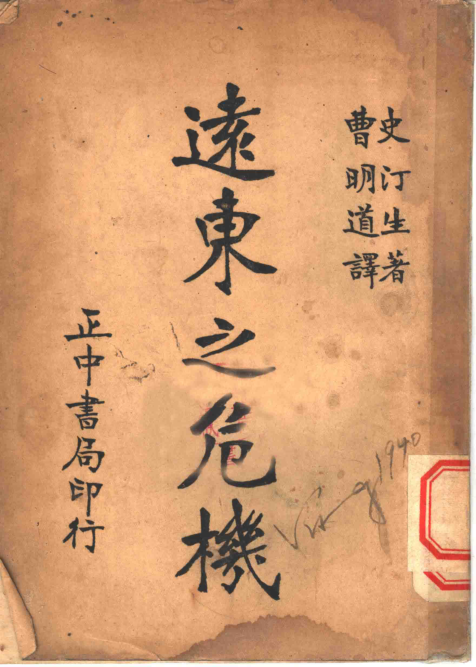 史汀生著
曹明道譯
遠東之危機
正中書局印行
1940